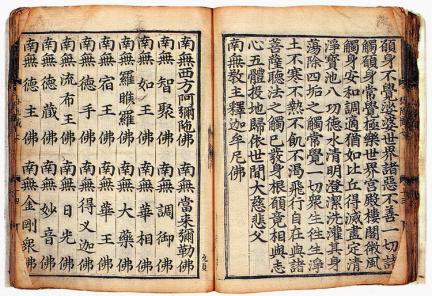 願身不覺娑婆世界諸惡不善一切諸
觸願身常覺極樂世界宮殿樓閣微風
觸身安和調適猶如比丘得滅盡定清
淨寶池八功德水清明澄潔洗濯其身
蕩除四垢之觸常覺一切眾生往生淨
土不寒不熱不飢不渴飛行自在與諸
菩薩聽法之觸已發身根願竟相與志
心五體投地歸依世間大慈悲父
南無教主釋迦牟尼佛
南無西方阿彌陀佛 南無當來彌勒佛
南無智聚佛 南無調御佛
南無如王佛 南無華相佛
南無羅睺羅佛 南無大藥佛
南無宿王佛 南無華王佛
南無德手佛 南無得叉迦佛
南無流布王佛 南無日光佛
南無德藏佛 南無妙音佛
南無德主佛 南無金剛眾佛